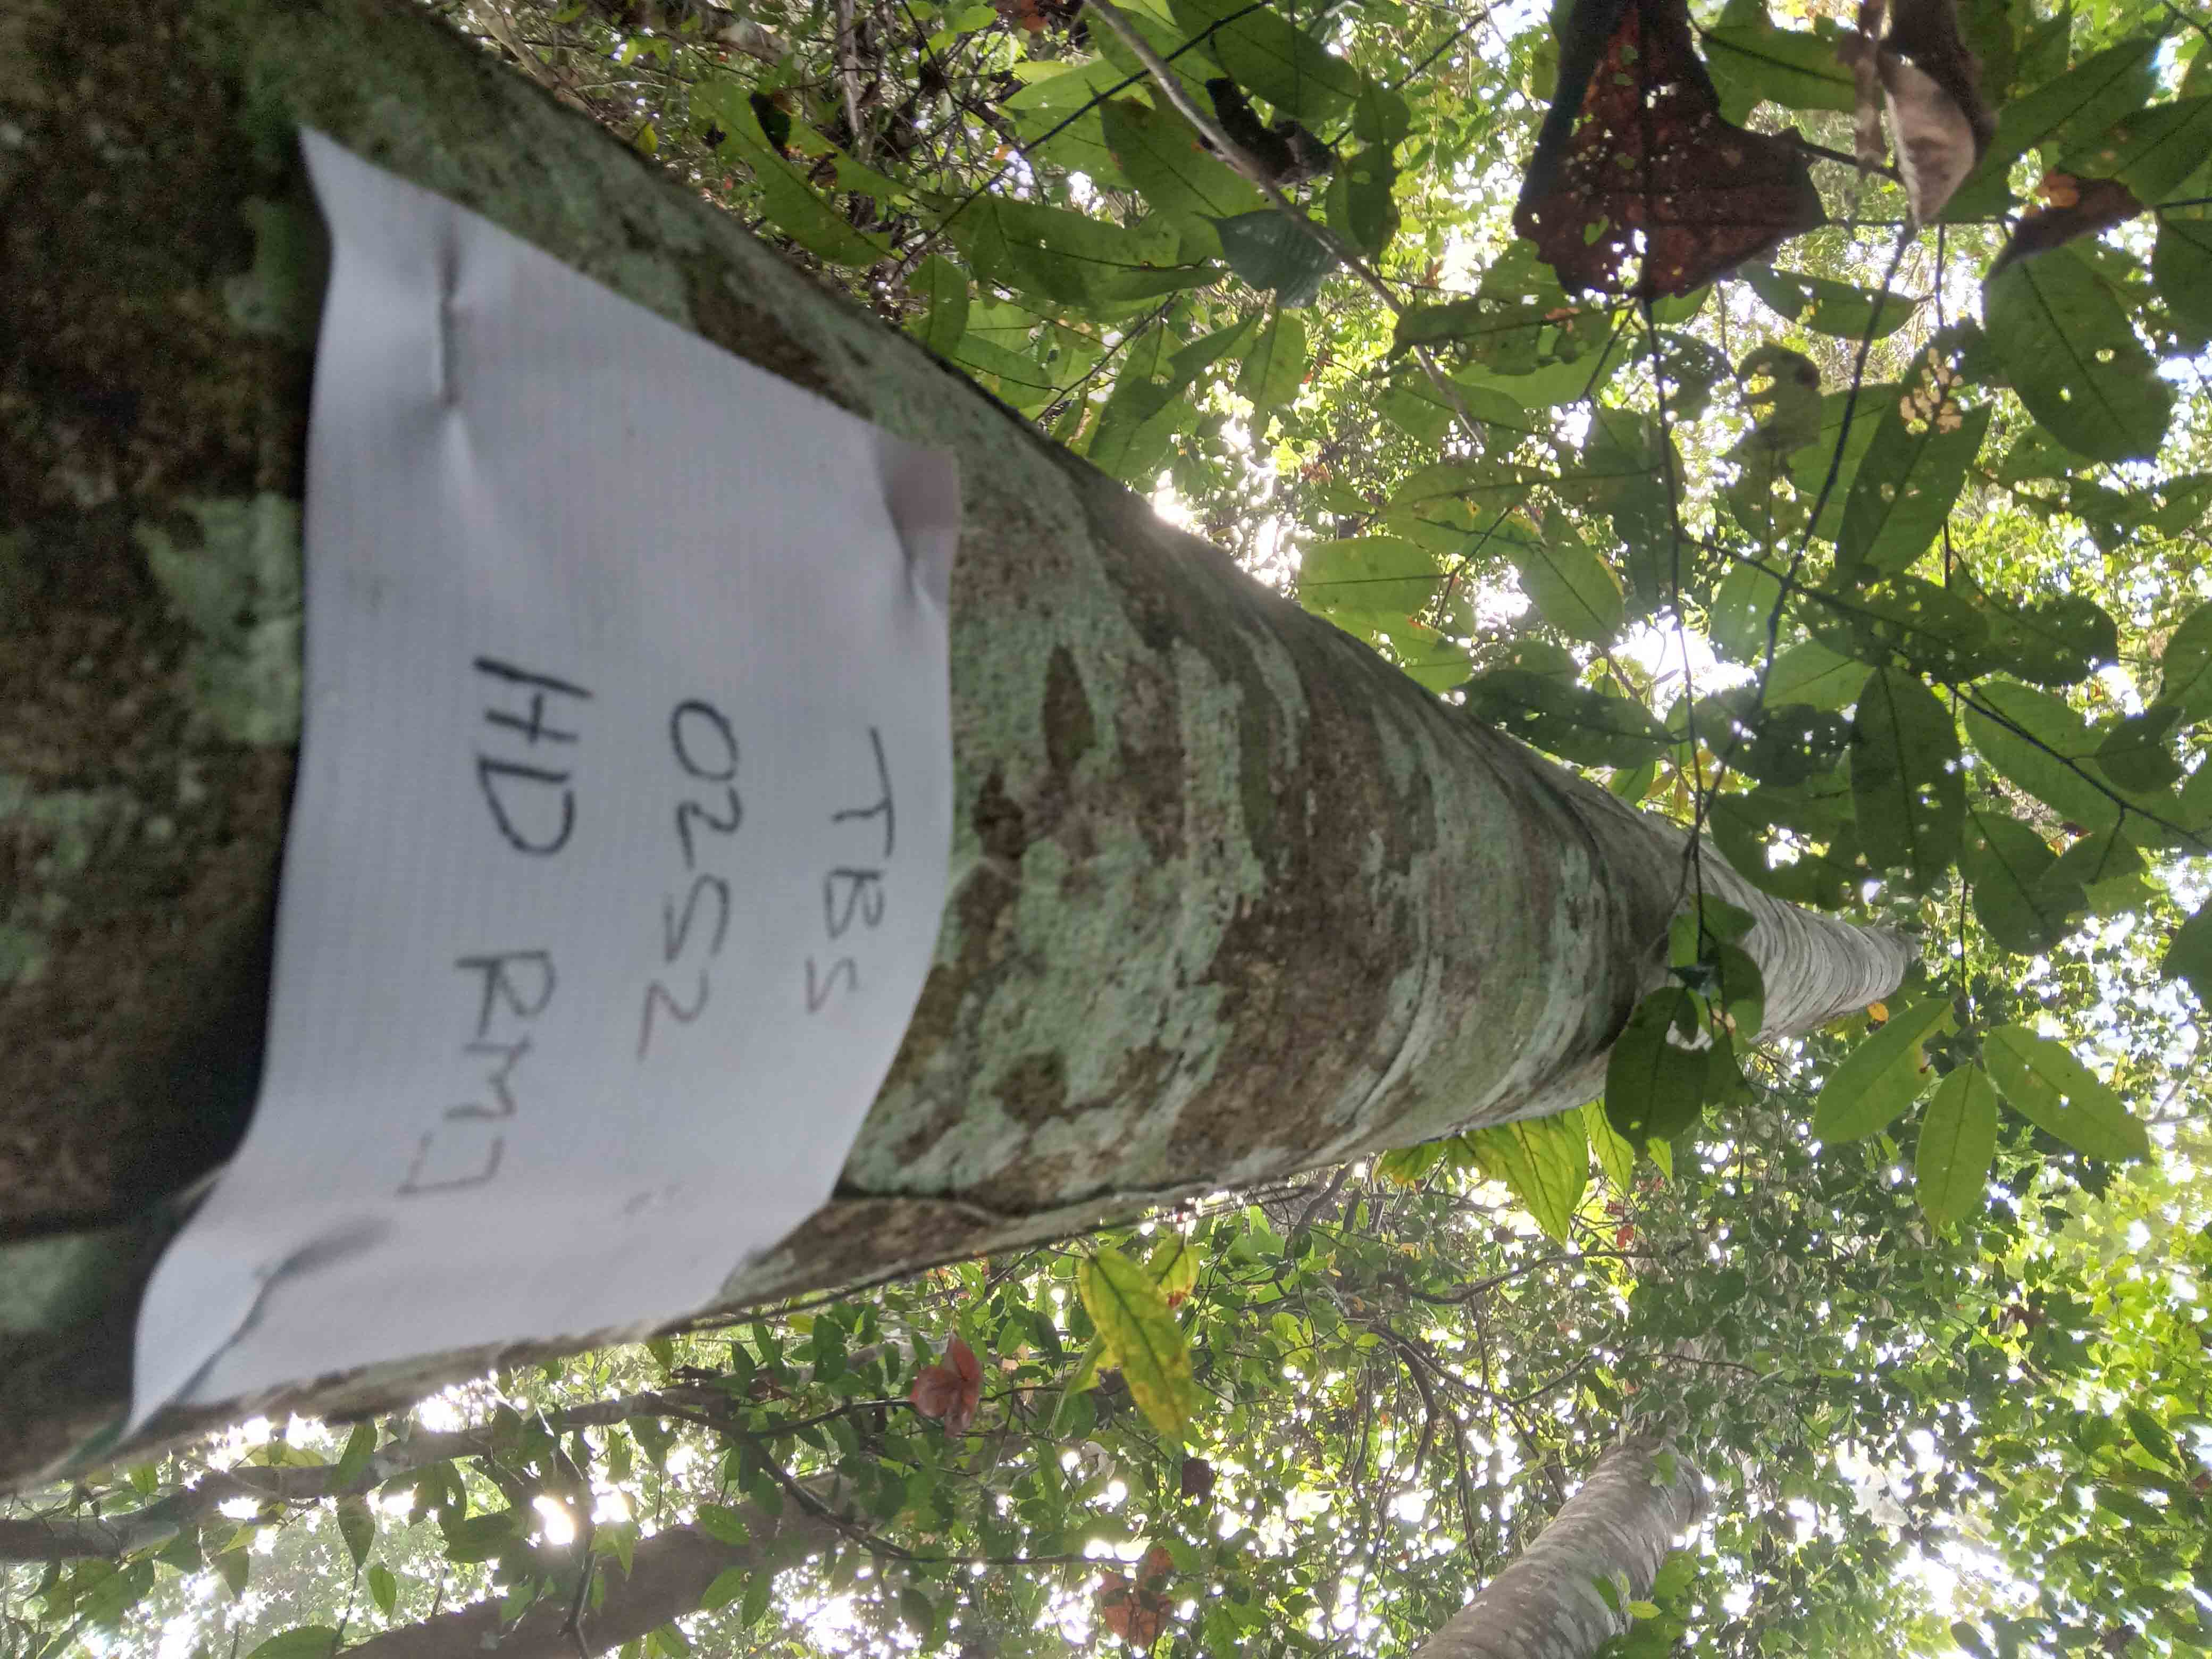 TBS
0252
HD RMJ